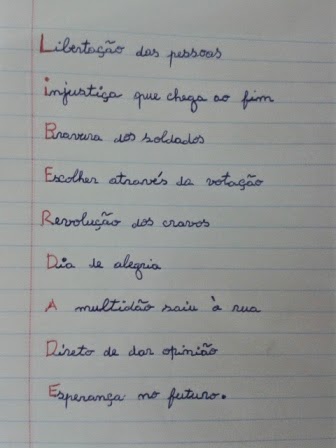 Libertação das pessoas
injustiça que chega ao fim
Bravura dos soldados
Escolher através da votação
Revolução dos cravos
Dia de alegria
A multidão saiu à rua
Direto de dar opinião
Esperança no futuro.